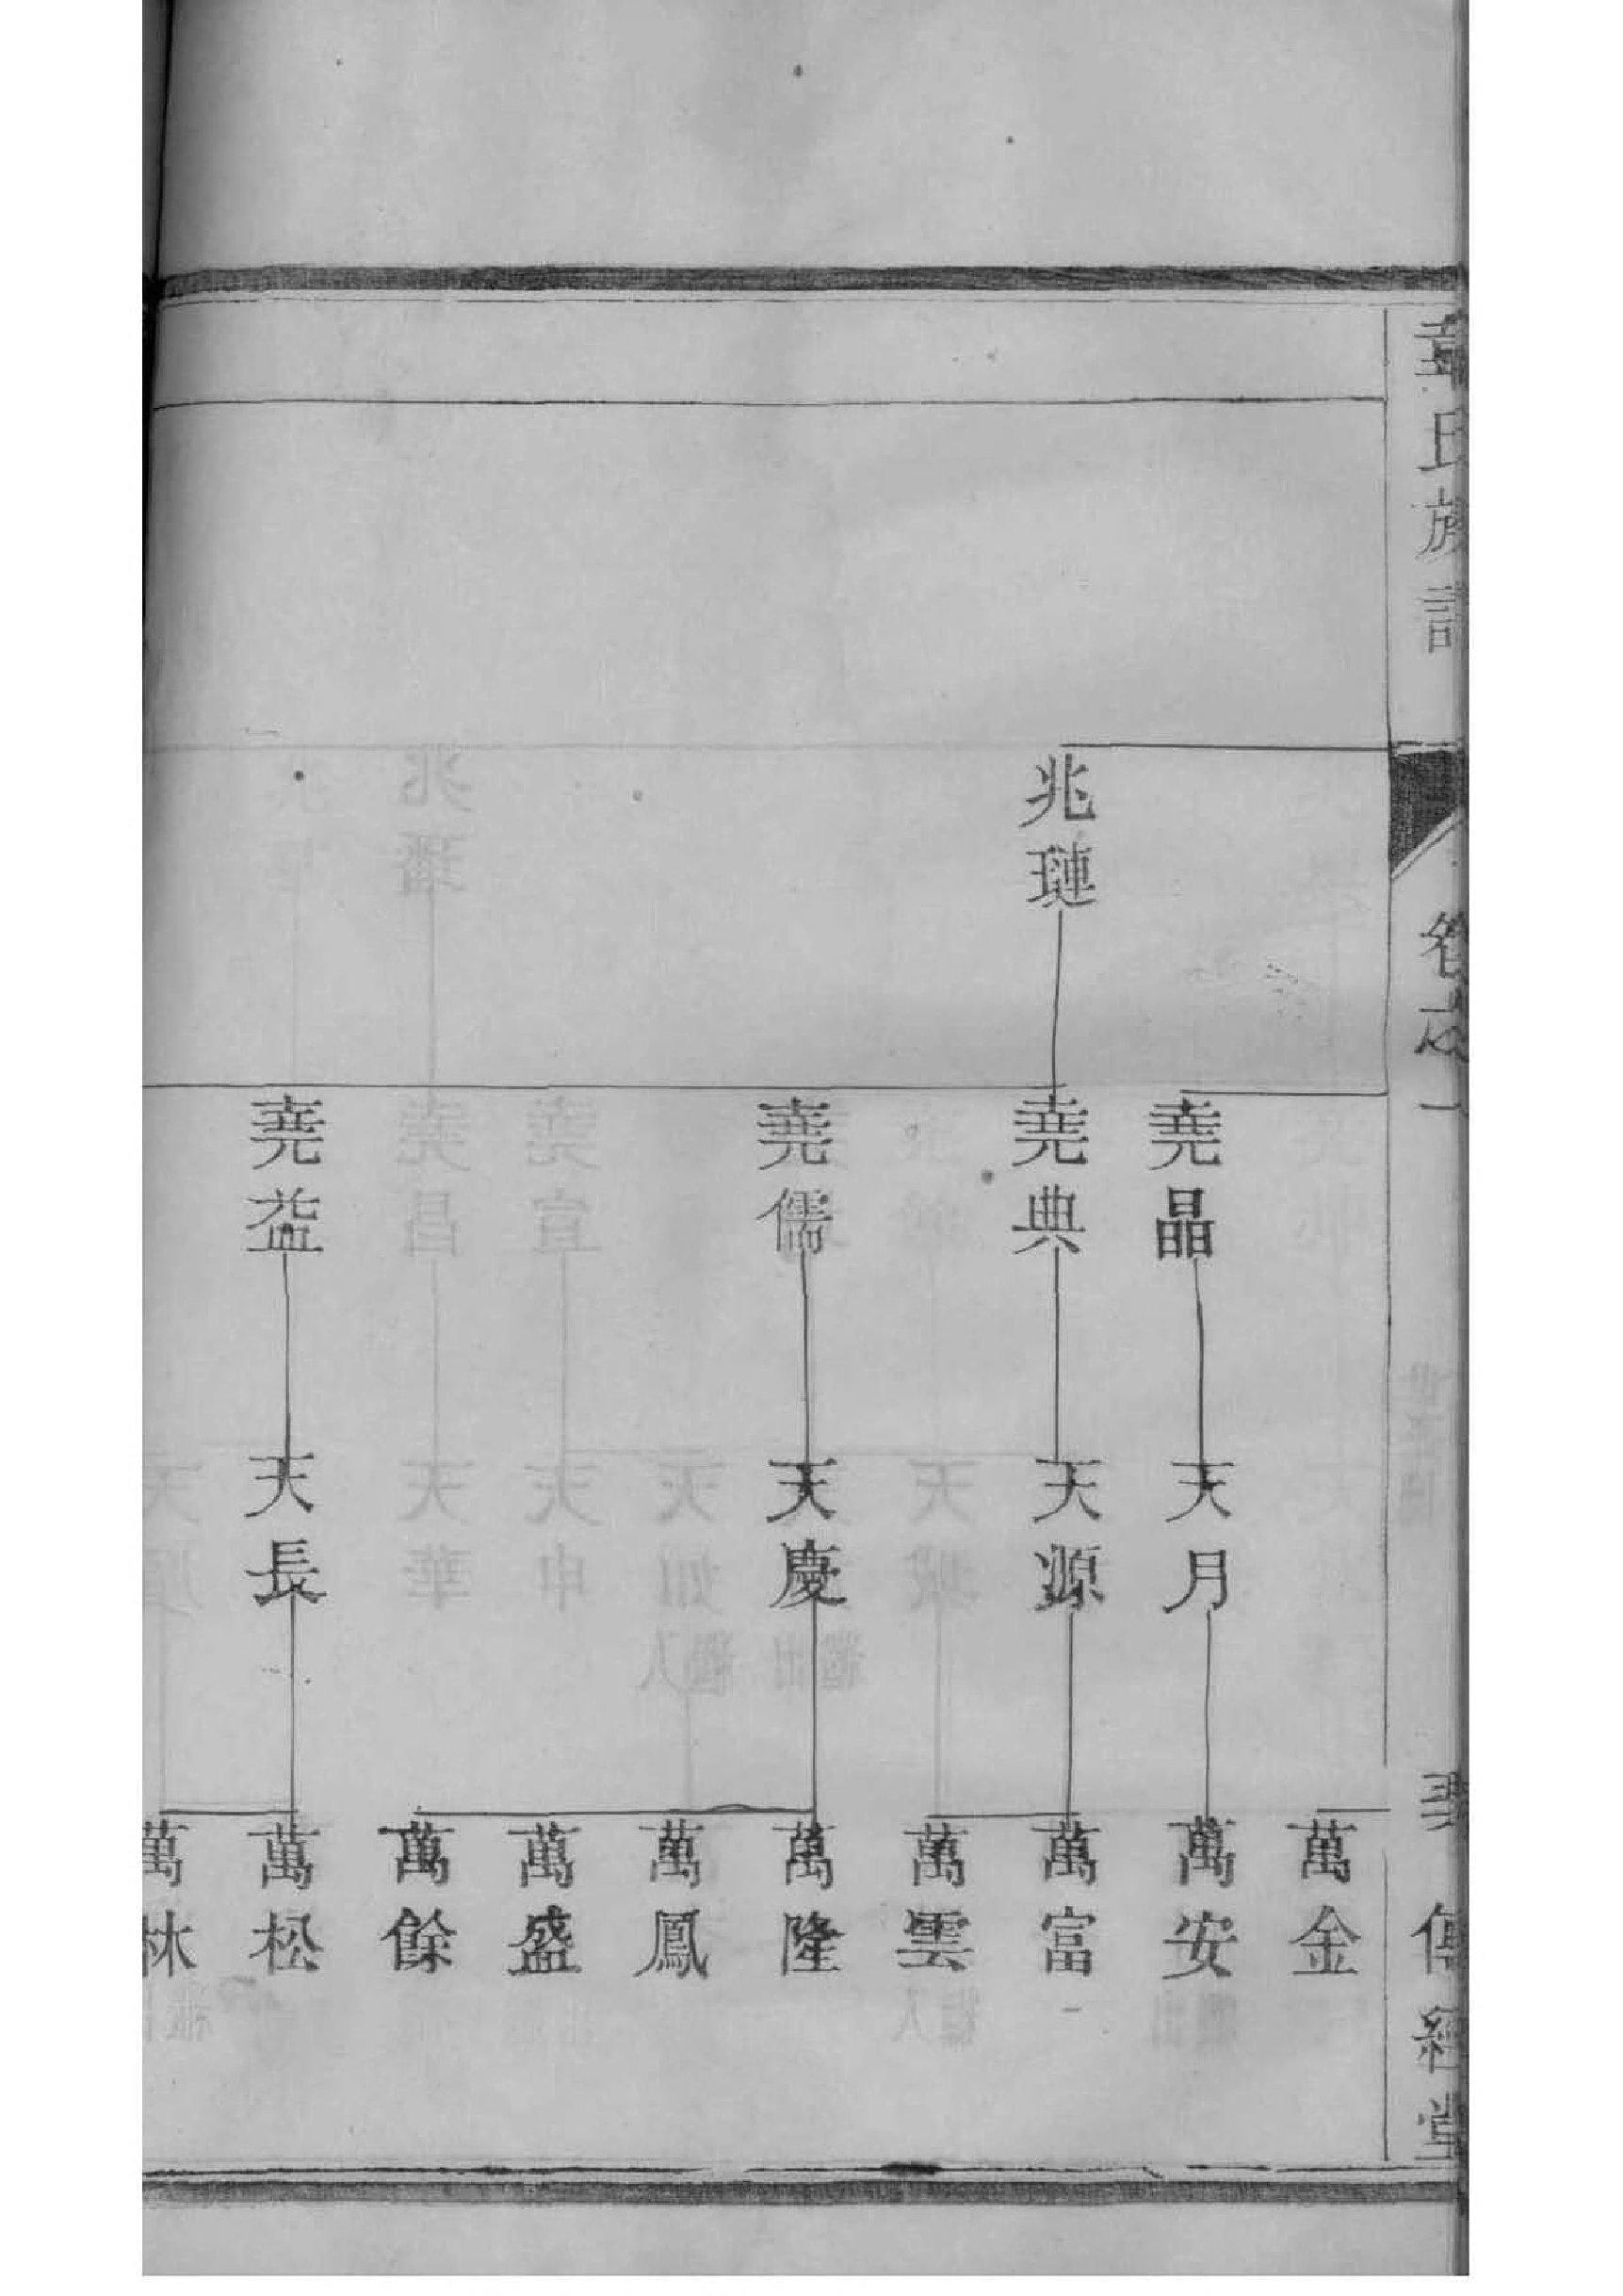 氏族譜
卷之一
傳經堂
兆璉
堯晶
堯典
堯儒
堯益
天月
天源
天慶
天長
萬金
萬安
萬富
萬雲
萬隆
萬鳳
萬盛
萬餘
萬松
萬林